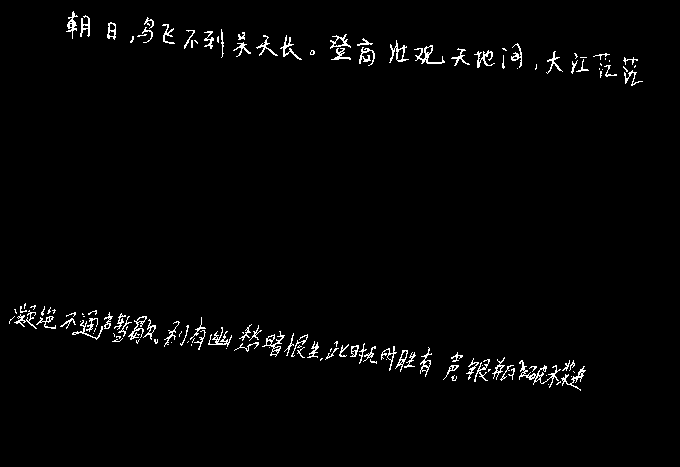 朝日,鸟飞不到吴天长。登高壮观天地间,大江茫茫
凝绝不通声暂歇、别有幽愁暗恨生,此时无声胜有声银瓶乍破水浆迸